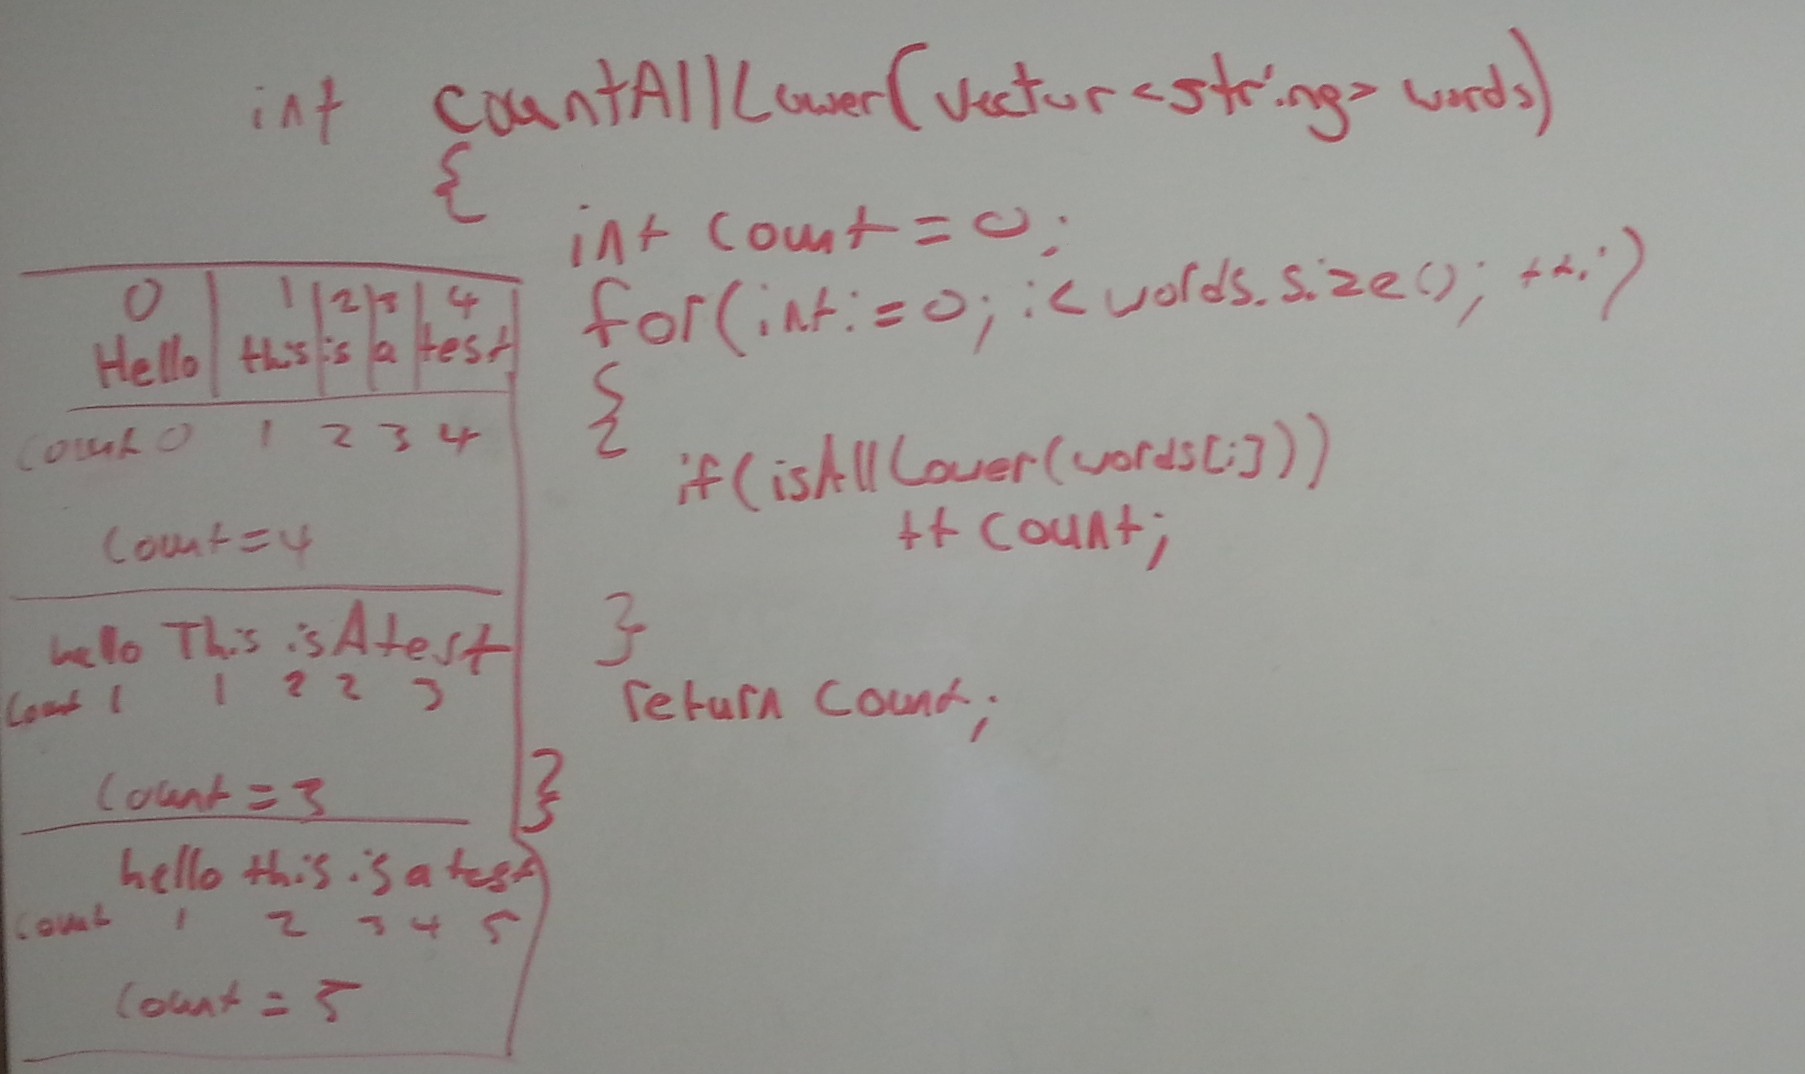 int countAllLower(vector<string> words)
{
int count = 0;
for(int i = 0; i < words.size(); ++i)
{
if(isAllLower(words[i]))
++count;
}
return count;
}
0 1 2 3 4
Hello this is a test
count 0 1 2 3 4
count = 4
hello This is A test
count 1 1 2 2 3
count = 3
hello this is a test
count 1 2 3 4 5
count = 5